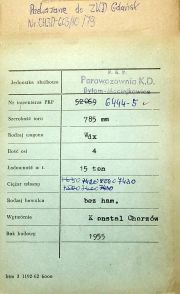 Przekazane do ZWD Gdańsk
P. K. P.
Jednostka służbowa Parowozownia K.D.
Bytom-
Nr inwentarza PKP 6444-5
Szerokość toru 785 mm
Rodzaj wagonu Wdx
Ilość osi 4
Ładowność w t. 15 ton
Ciężar własny 7430
Rodzaj hamulca bez ham.
Wytwórnia K onstal Chorzów
Rok budowy 1955